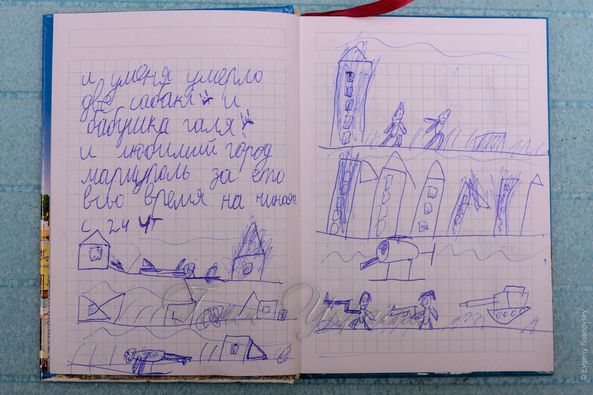 и уменя умерло
две сабаки и
бабушка галя
и любимий город
мариуполь за ето
все время на чиная
с 24 чт
© Evgeny Sosnovsky